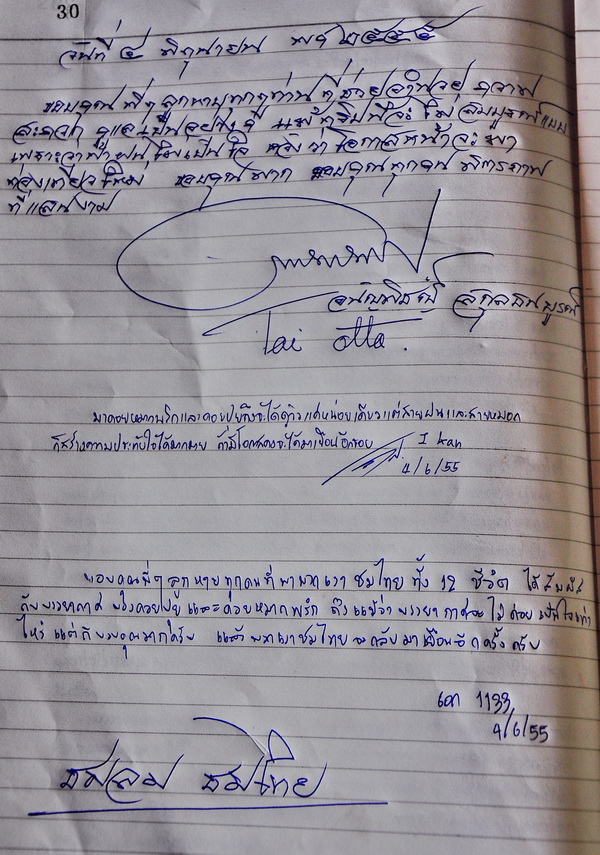 30
วันที่ ๔ มิถุนายน พศ ๒๕๕๕
ขอบคุณ พี่ๆ ลูกหาบทุกท่าน ที่ช่วยอำนวย ความ
สะดวก ดูแลเป็นอย่างดี แม้ทริปนี้จะไม่สมบูรณ์แบบ
เพราะว่าฟ้าฝนไม่เป็นใจ หวังว่าโอกาสหน้าจะมา
ท่องเที่ยวใหม่ ขอบคุณมาก ขอบคุณทุกคน มิตรภาพ
ที่แสนงาม
Tai otto.
มาดอยหมากพริกและดอยปุย แค่หน่อยเดียว แต่สายฝนและสายหมอก
ก็สร้างความประทับใจได้มากมาย ถ้ามีโอกาสคงจะได้มาเยือนอีกรอย
I kan
4/6/55
ขอบคุณพี่ๆ ลูกหาบทุกคนที่พาพวกเรา ชมไทย ทั้ง 12 ชีวิต ได้สัมผัส
กับบรรยากาศ ของดอยปุย และดอยหมากพริก ถึงแม้ว่า บรรยากาศจะไม่ค่อยเป็นใจเท่า
ไหร่ แต่ก็ขอบคุณมากครับ แล้วพวกเราชมไทย จะกลับมาเยือนอีกครั้งครับ
เอก 1133
4/6/55
ชมลม ชมไทย